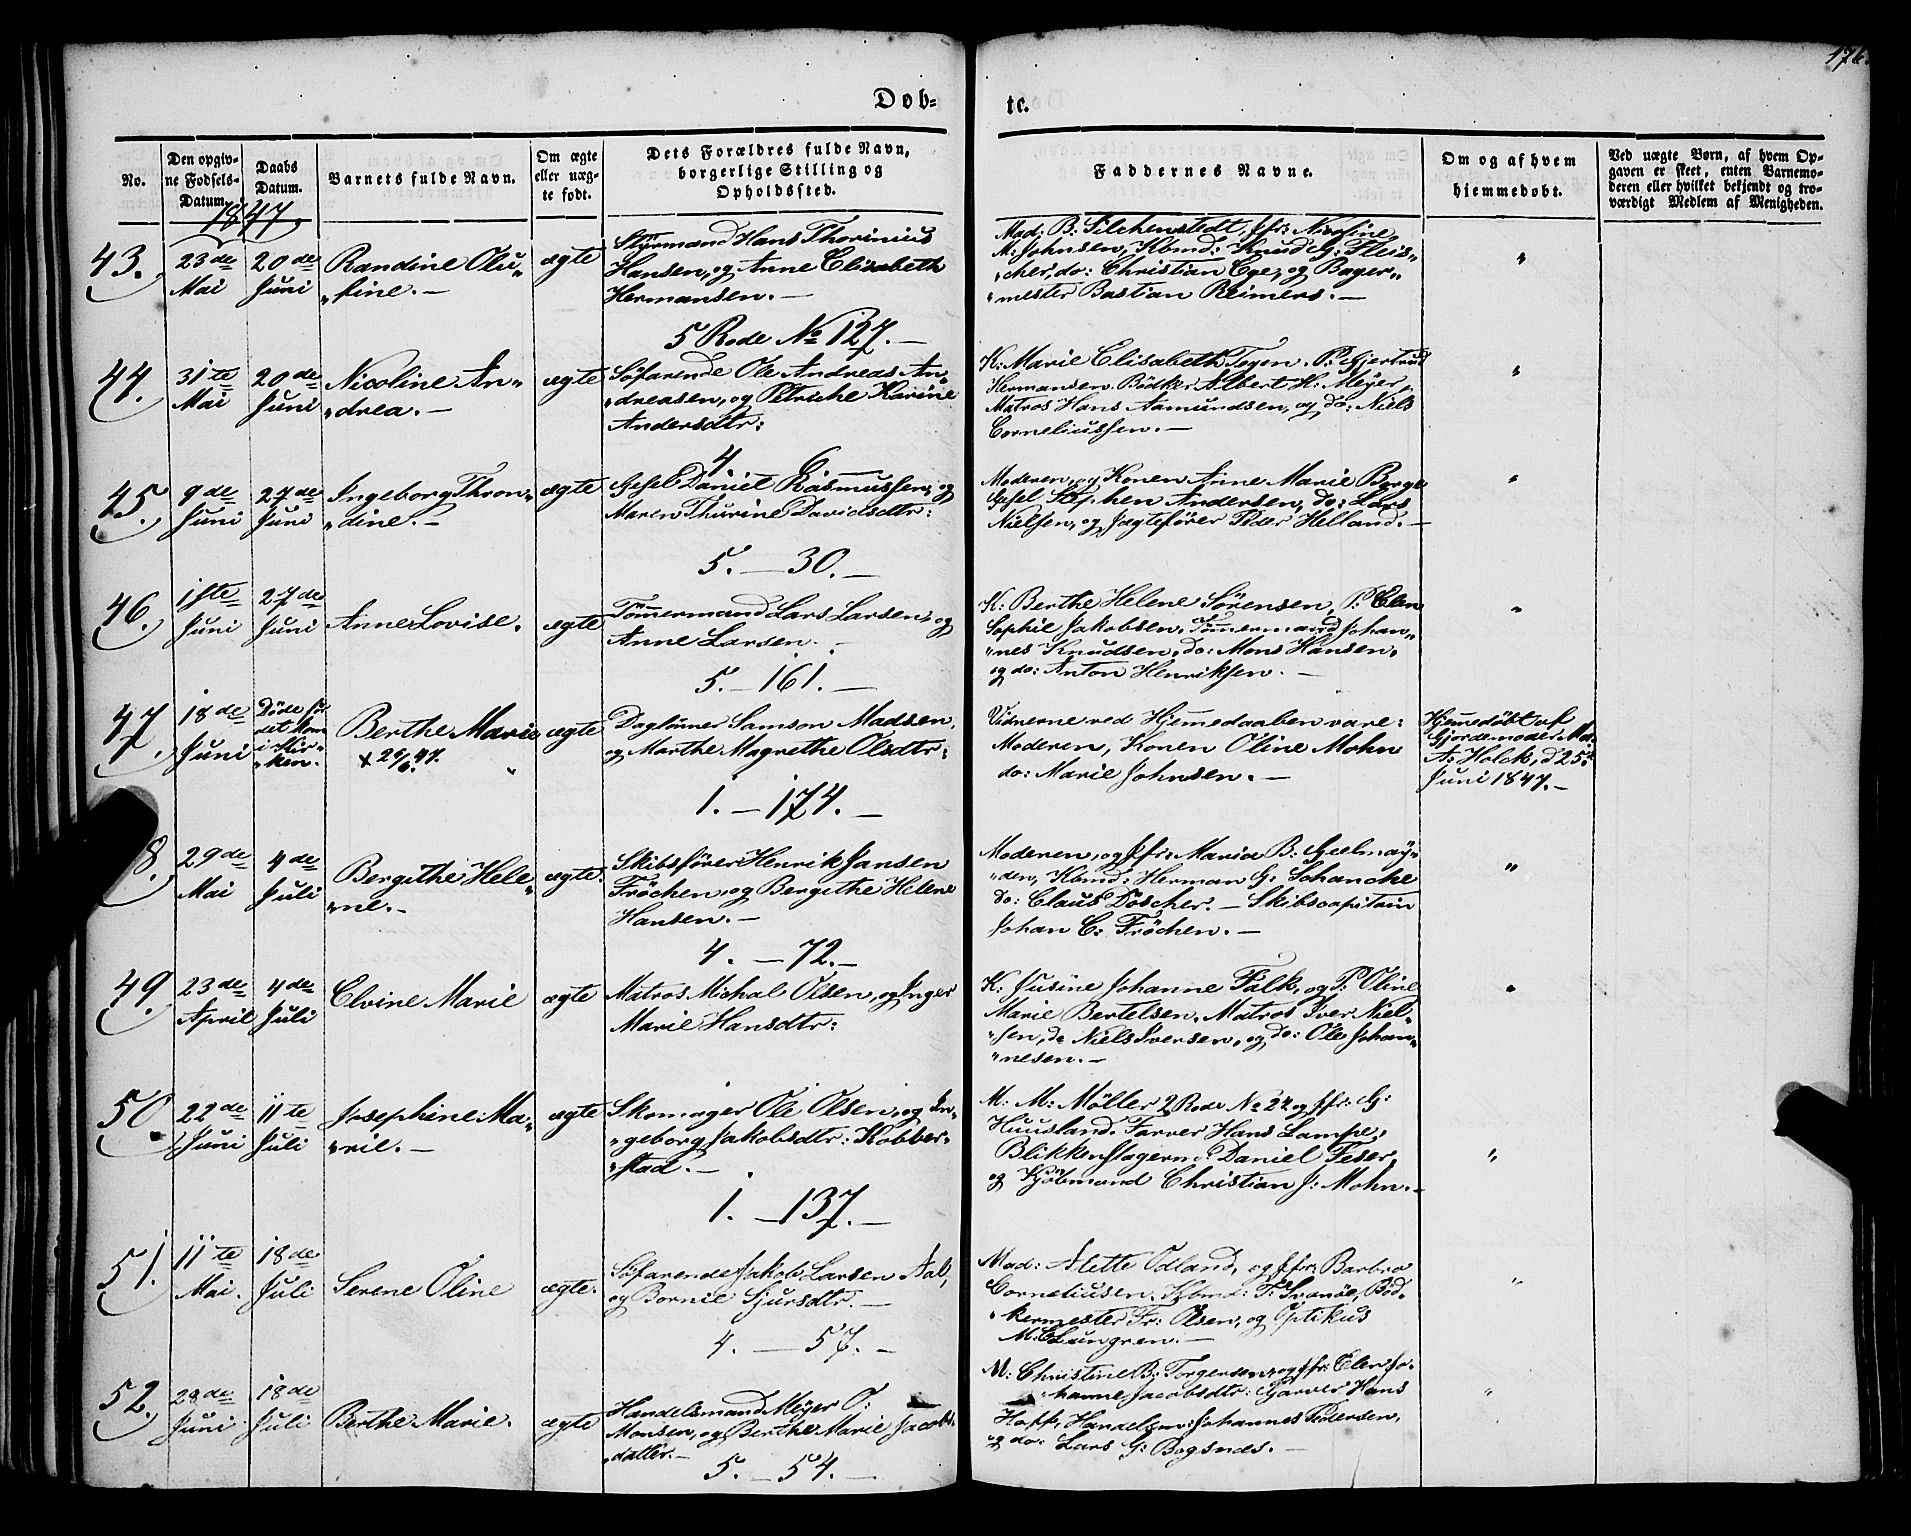 176.
Døb-
te.
No.
Den opgiv-
ne Fødsels-
Datum.
Daabs
Datum.
Barnets fulde Navn.
Om ægte
eller uæg-
te født.
Dets Forældres fulde Navn,
borgerlige Stilling og
Opholdssted.
Faddernes Navne.
Om og af hvem
hjemmedøbt.
Ved uægte Børn, af hvem Op-
gaven er skeet, enten Barnemo-
deren eller hvilket bekjendt og tro-
værdigt Medlem af Menigheden.
1847.
43.
23de
Mai
20de
Juni
Randine Olu„
„fine.—
ægte
Styrmand Hans Thorinius
Hansen, og Anne Elisabeth
Hermansen.—
5 Rode No 127.—
Mad: B: Filchenstedt, Jfr: Nicoline
M. Johnsen, Kbmd: Knud G: Fleis„
„cher, do: Christian Ege, og Bager„
„mester Bastian Reimers.—
"
44.
31te
Mai
20de
Juni
Nicoline An„
„drea.—
ægte
Søfarende Ole Andreas An„
„dreasen, og Petriche Karine
Andersdtr:
4 6
K: Marie Elisabeth Tegen. P: Gjertrud
Hermansen. Bödker Albert H. Meyer,
Matros Hans Aamundsen, og do: Niels
Corneliussen.—
"
45.
9de
Juni
27de
Juni
Ingeborg Thron„
„dine.—
ægte
Gesel Daniel Rasmussen, og
Maren Thurine Davidsdtr:
5.—30.—
Moderen, og Konen Anne Marie Borge
Gesel Stephen Andersen, do: Lars
Nielsen, og Jagtefører Peder Helland.—
"
46.
1ste
Juni
27de
Juni
Anne Lovise.
ægte
Tömmermand Lars Larsen, og
Anne Larsen.
5.—161.—
K: Berthe Helene Sörensen, P: Elen
Sophie Jakobsen, Tömmermand Johan„
„nes Knudsen, do: Mons Hansen,
og do: Anton Henriksen.—
"
47.
18de
Juni
Döde før
det kom
i Kir„
„ken.
Berthe Marie
+ 26/6 47.
ægte
Daglönner Samson Madsen,
og Marthe Magrethe Olsdtr:
1.—174.—
Vidnerne ved Hjemmedaaben vare:
Moderen, Konen Oline Mohn
do: Marie Johnsen.—
Hjemmedöbt af
Gjordemoder Mad.
A: Holck, d 25de
Juni 1847.—
8.
29de
Mai
4de
Juli
Bergithe Hele„
„ne.—
ægte.
Skibsfører Henrik Jansen
Fröchen, og Bergithe Helene
Hansen.—
4.—72.—
Moderen, og Jfr: Maria B: Gjelmøy„
„den, Kbmd: Herman G: Schancke
do: Claus Döscher.— Skibscapitain
Johan C: Fröchen.—
"
49.
23de
April
4de
Juli
Elvine Marie
ægte
Matros Michal Olsen, og Inger
Marie Hansdtr:
K: Susine Johanne Falk, og P: Oline
Marie Bertelsen. Matros Iver Niel„
„sen, do Niels Iversen, og do: Ole Johan„
„nesen.—
"
50.
22de
Juni
11te
Juli
Josephine Ma„
„rie.—
ægte
Skomager Ole Olsen, og In„
„geborg Jakobsdtr: Kobber„
„stad.—
1.—137.—
M: M: Möller 2 Rode No 24 og Jfr: G:
Huusland. Farver Hans Lampe,
Blikkenslagerm: Daniel Feser,
og Kjöbmand Christian J: Mohn.—
"
51.
11te
Mai.
18de
Juli
Serene Oline
ægte.
Søfarende Jakob Larsen Aal,
og Bornie Sjursdtr.—
4.—57.—
Mad: Alette Odland, og Jfr: Barbro
Corneliusen. Kbmd: T: Svanöe, Böd„
„kermester Fr: Olsen, og Optikus
M: Lungren.—
"
52.
28de
Juni
18de
Juli
Berthe Marie.
ægte
Handelsmand Meyer O:
Monsen, og Berthe Marie Jacobs„
„datter.—
5.—54.—
M: Christine B: Torgersen, og Jfr: Elen Jo„
„hanne Jacobsdtr: Garver Hans
Hoff, Handelsm: Johannes Pedersen,
og do: Lars G: Bogsnes.—
"